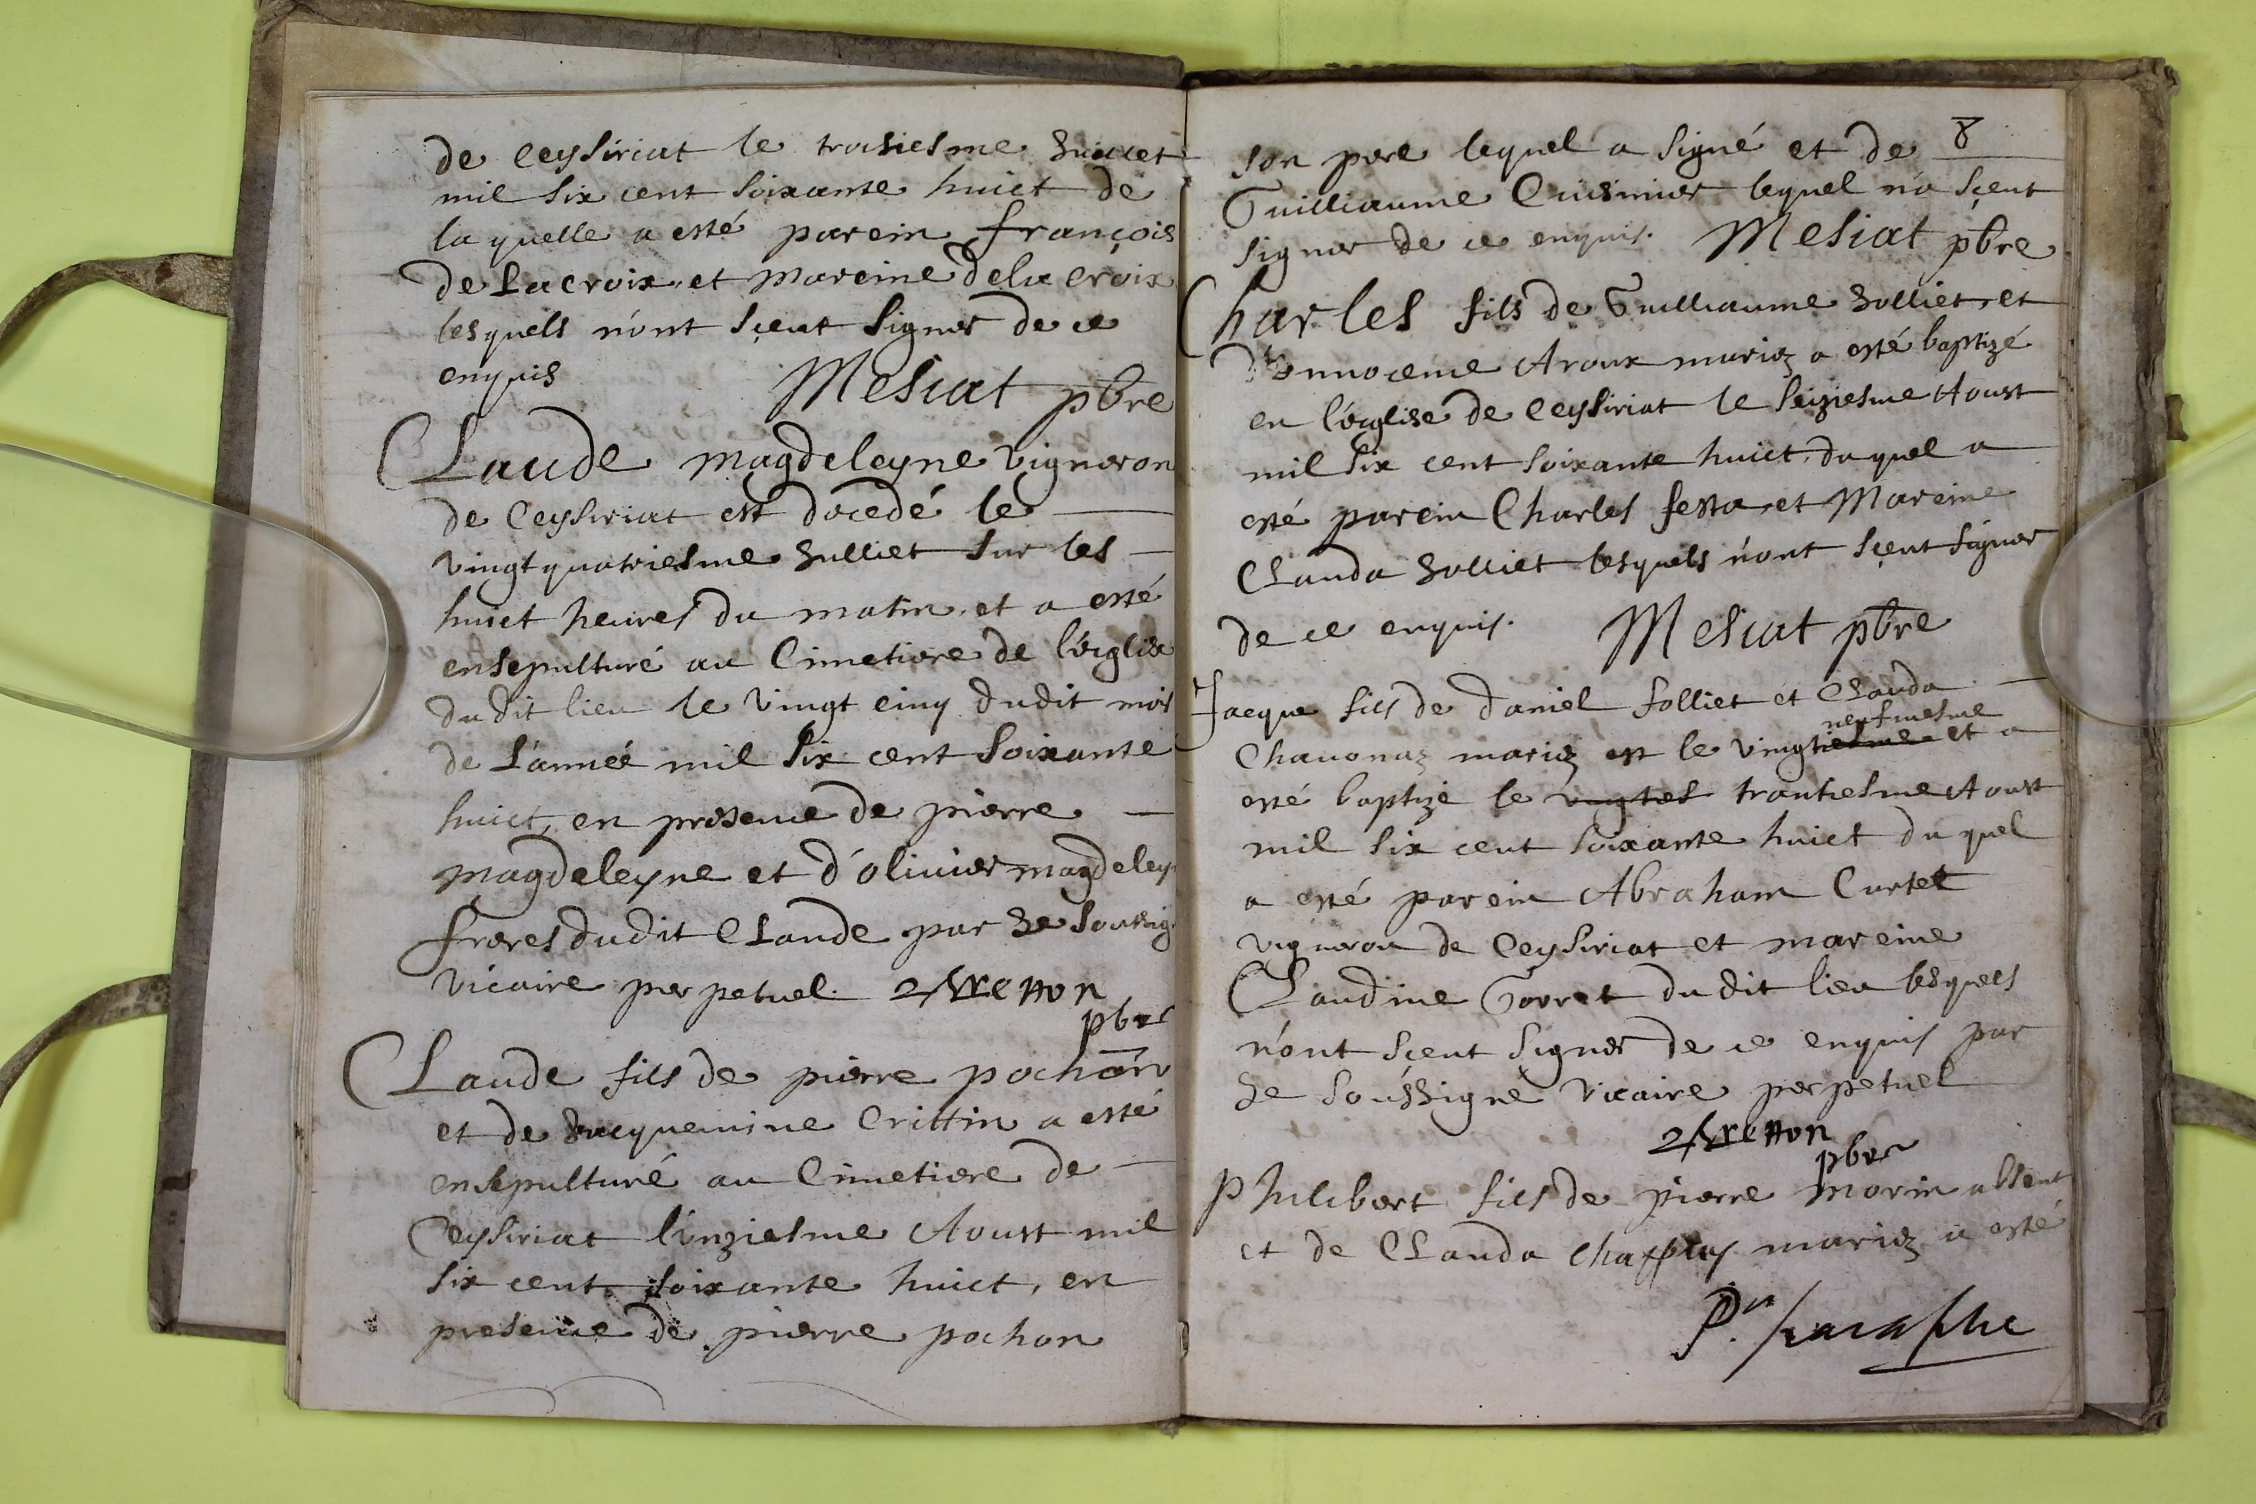 de Ceysiriat le troisiesme Juillet
mil six cent soixante huict de
la quelle a esté parein françois
de Lacroix et mareine dela croix
lesquels n'ont sçeut signer de ce
enquis
Mesiat pbre
Claude magdeleyne vigneron
de Ceysiriat est decedé le
vingt quatriesme Julliet sur les
huict heures du matin et a esté
ensepulturé au Cimetiere de l'eiglise
du dit lieu le vingt cinq dudit mois
de L'année mil six cent soixante
huict, en presence de pierre
magdeleyne et d'olivier magdeley
freres dudit Claude par Je soussig
vicaire perpetuel.
pbre
Claude fils de pierre pochon
et de Jacquemine Crittin a esté
ensepulturé au Cimetiere de
Ceysiriat l'unziesme Aoust mil
six cent soixante huict, en
presence de pierre pochon
8
son pere lequel a signé et de
Guilliaume Cuisinier lequel n'a sçeut
signer de ce enquis. Mesiat pbre
Charles fils de Guilliaume Jolliet et
d'Innocence Aroux mariez a esté baptizé
en l'eiglise de Ceysiriat le seiziesme Aoust
mil six cent soixante huict, du quel a
esté parein Charles festa et Mareine
Clauda Jolliet lesquels n'ont sçeut signer
de ce enquis. Mesiat pbre
Jacque fils de daniel folliet et Clauda
neufviesme
Chavonaz mariez est le vingtiesme et a
esté baptizé le vingties trantiesme Aoust
mil six cent soixante huict du quel
a esté parein Abraham Curtet
vigneron de Ceysiriat et mareine
Claudine Gorret du dit lieu lesquels
n'ont sçeut signer de ce enquis par
Je soussigné vicaire perpetuel
pbre
Philibert fils de pierre morin absent
et de Clauda chappuys mariez a esté
Pr. paraphe